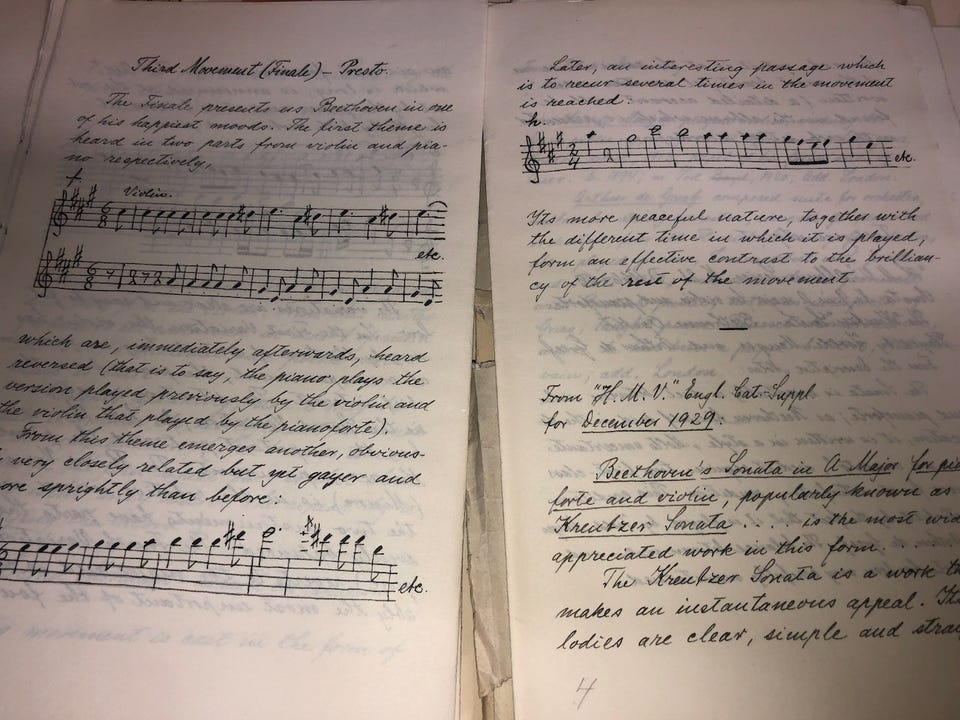 Third Movement (Finale) – Presto.
The Finale presents us Beethoven in one
of his happiest moods. The first theme is
heard in two parts from violin and pia-
no respectively,
Violin.
etc.
which are, immediately afterwards, heard
reversed (that is to say, the piano plays the
version played previously by the violin and
the violin that played by the pianoforte).
From this theme emerges another, obvious-
very closely related but yet gayer and
ore sprightly than before:
etc.
Later, an interesting passage which
is to recur several times in the movement
is reached:
h.
etc.
Its more peaceful nature, together with
the different time in which it is played,
form an effective contrast to the brillian-
cy of the rest of the movement
From "H. M. V." Engl. Cat. Suppl
for December 1929:
Beethoven's Sonata in A Major for pia
forte and violin, popularly known as
Kreutzer Sonata . . . . is the most wid
appreciated work in this form. . . . .
The Kreutzer Sonata is a work th
makes an instantaneous appeal. Its
lodies are clear, simple and strai
4